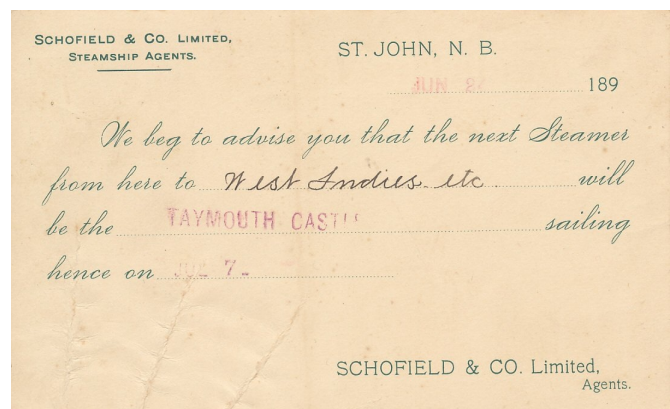 SCHOFIELD & CO. LIMITED,
STEAMSHIP AGENTS.
ST. JOHN, N. B.
JUN 189
We beg to advise you that the next Steamer
from here to West Indies etc will
be the TAYMOUTH CASTLE sailing
hence on 7
SCHOFIELD & CO. Limited,
Agents.